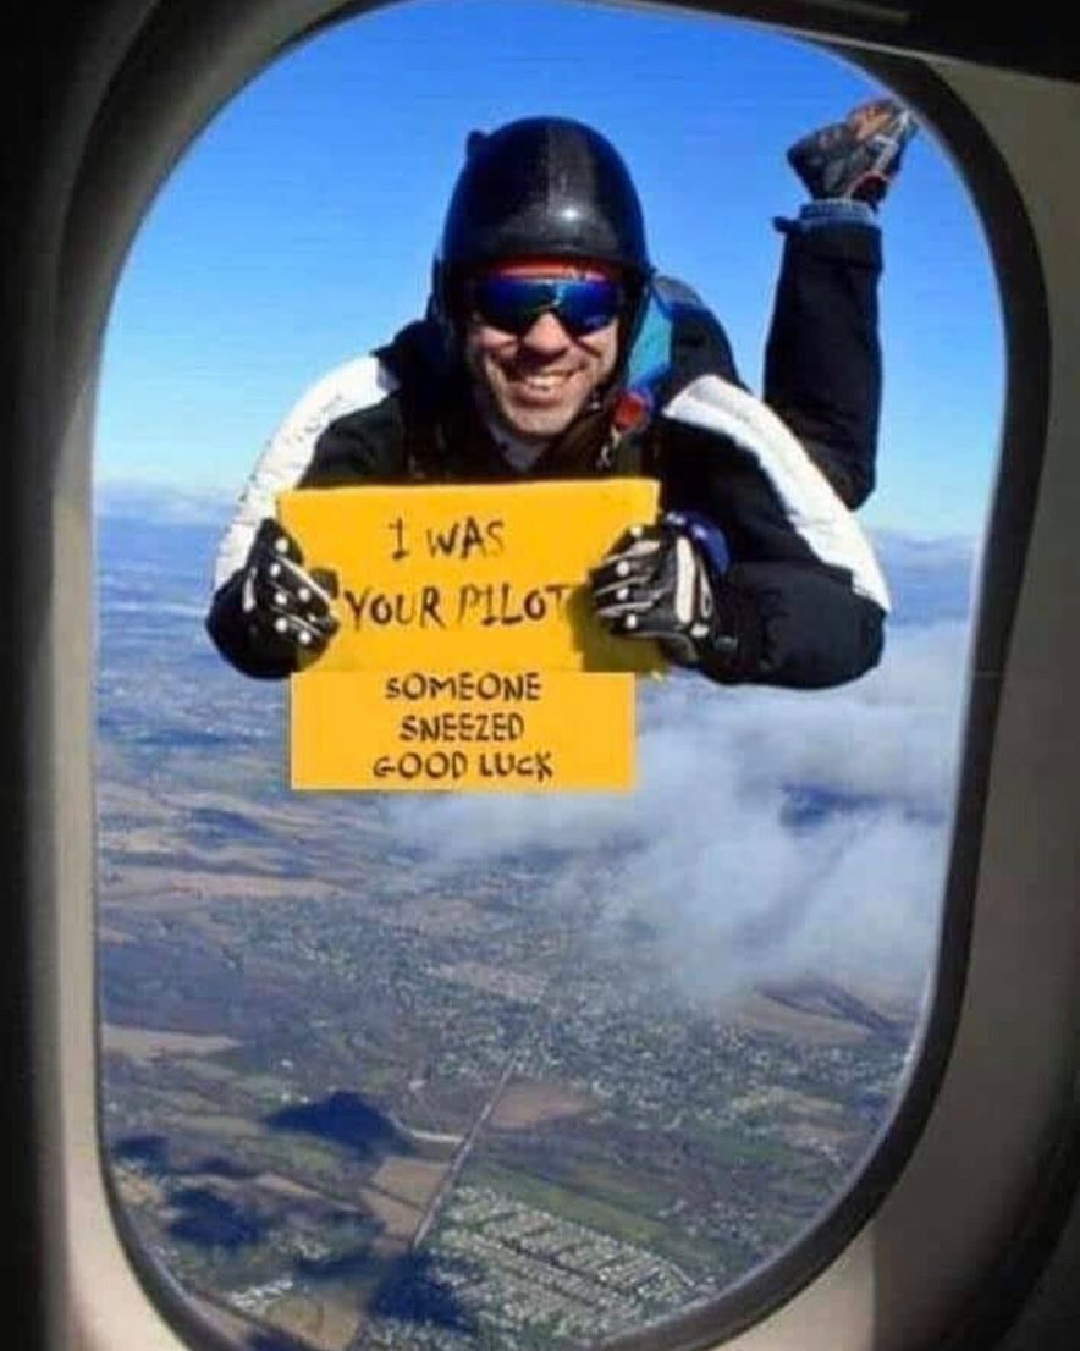 I WAS
YOUR PILOT
SOMEONE
SNEEZED
GOOD LUCK